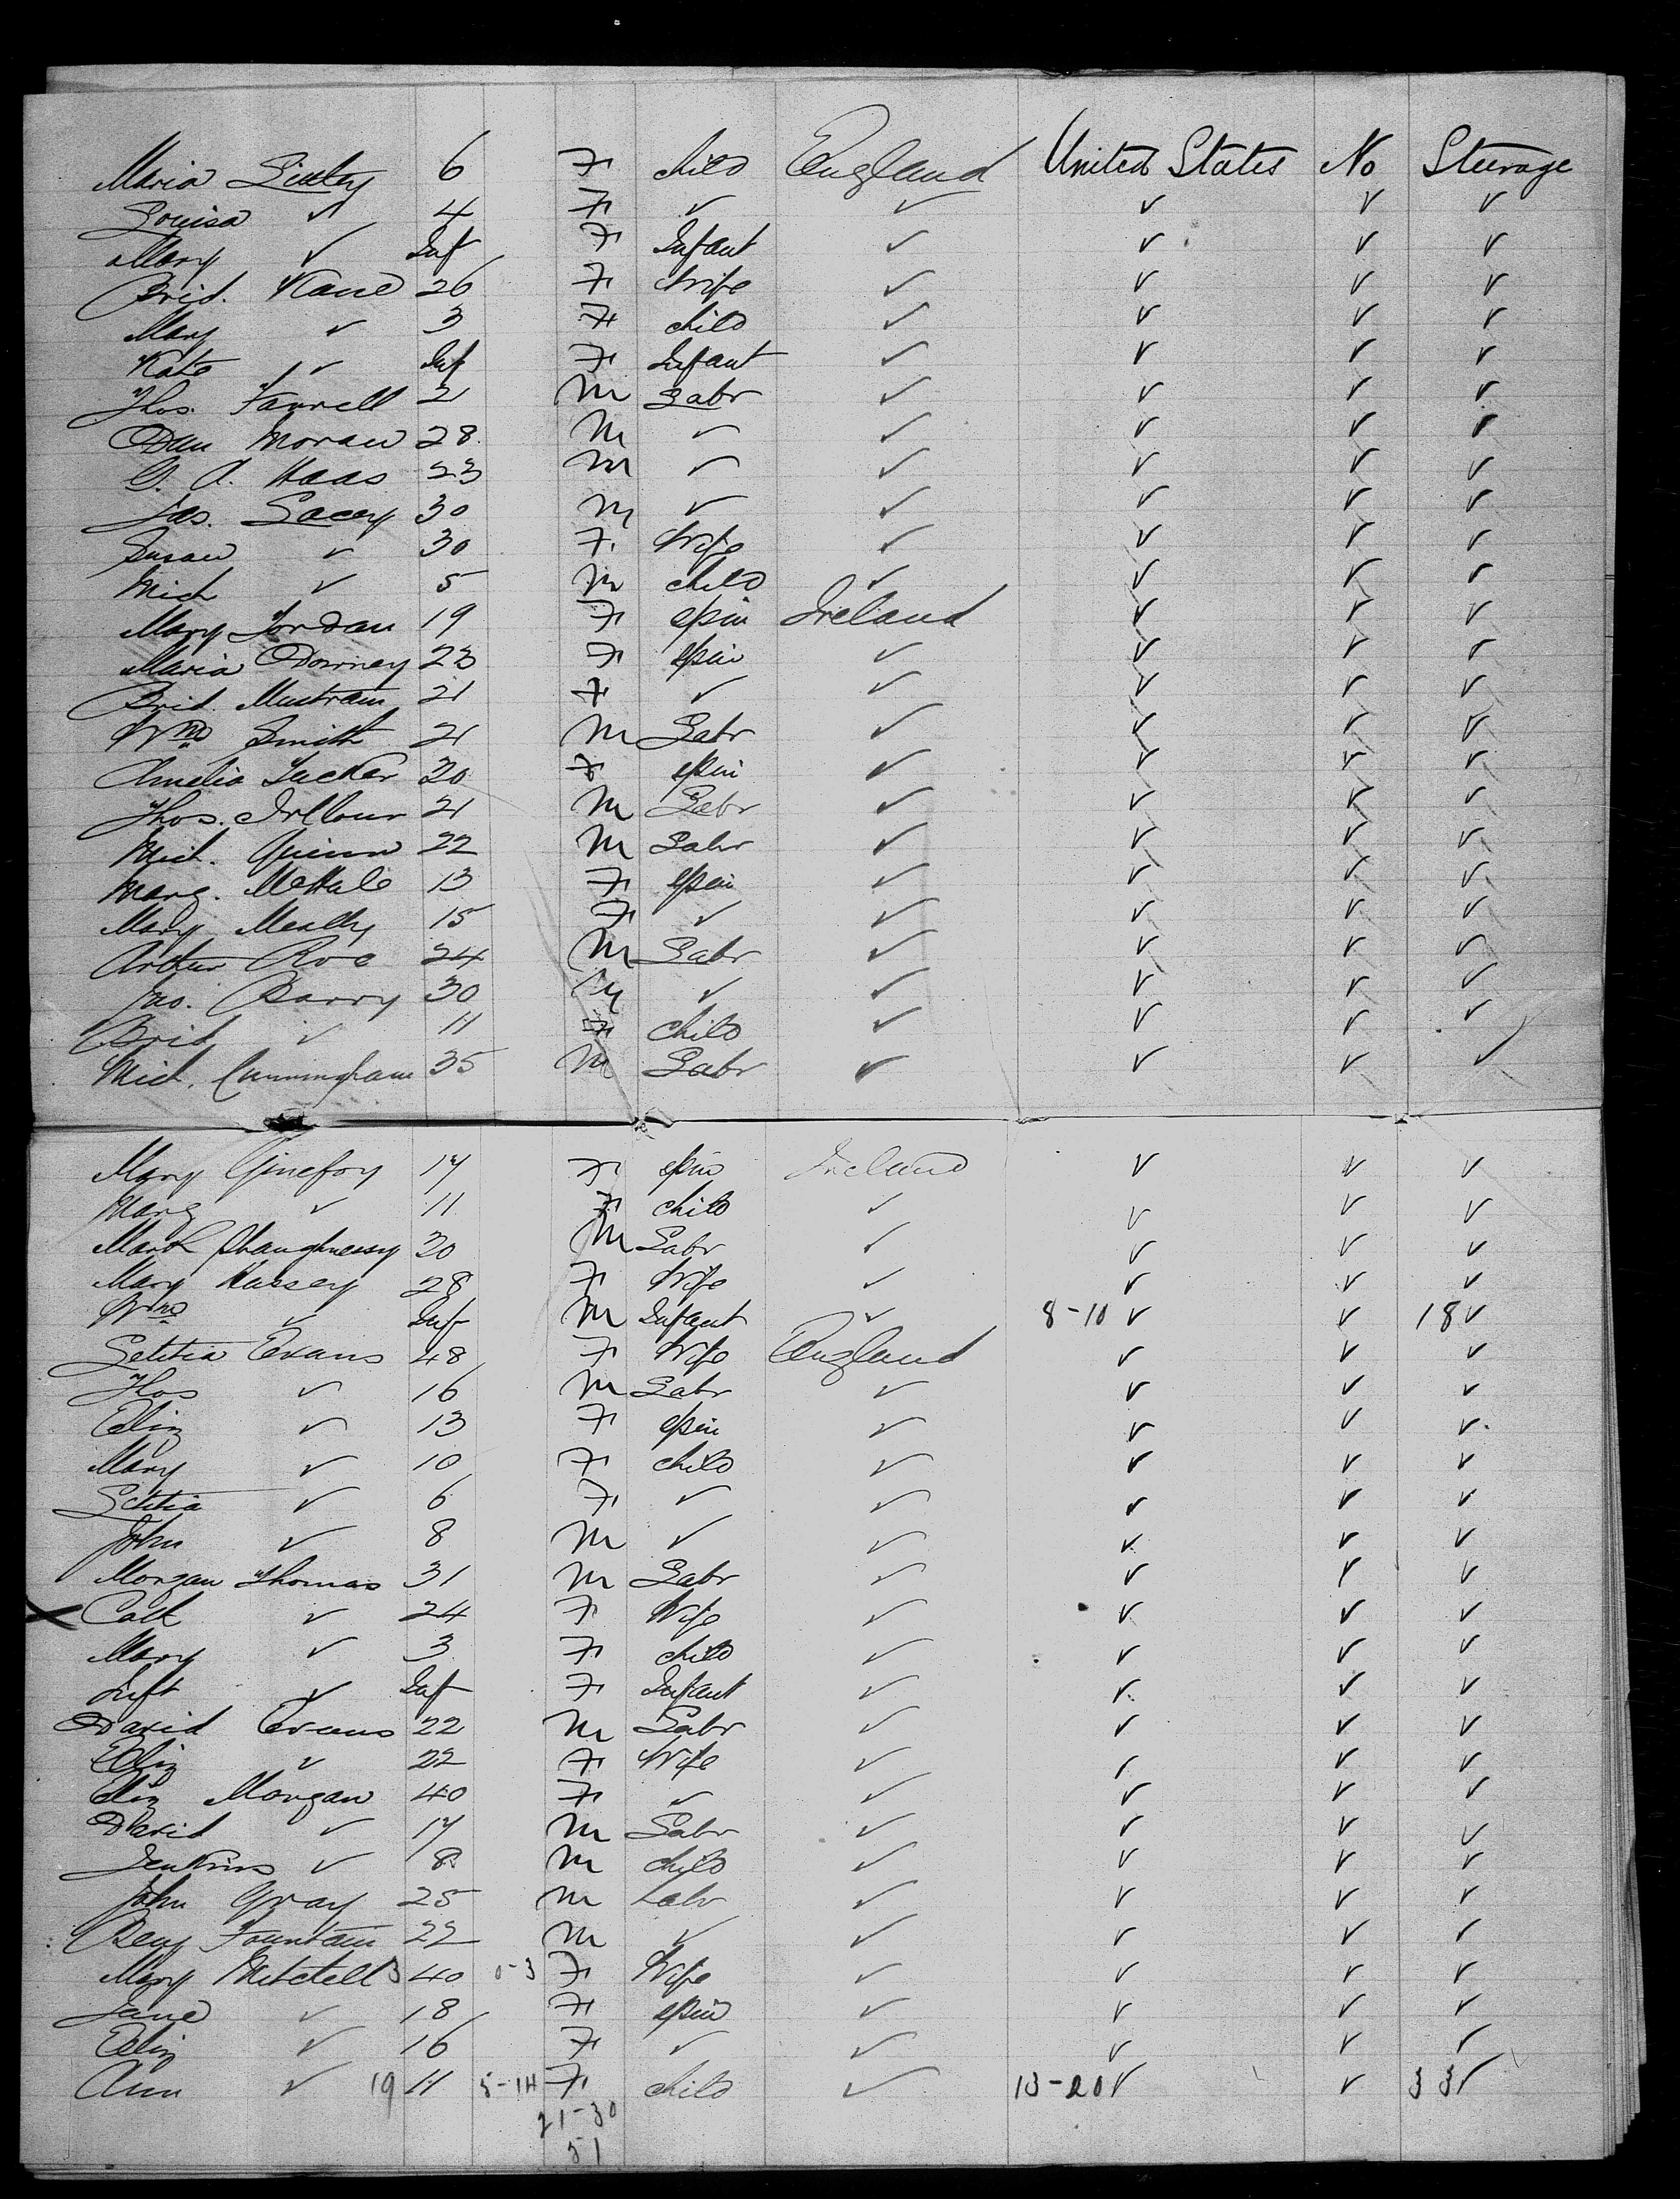 Maria 6 F child England United States No Steerage
Louisa ✓ 4 F ✓ ✓ ✓ ✓ ✓
Mary ✓ Inf F Infant ✓ ✓ ✓ ✓
Brid. Kane 26 F Wife ✓ ✓ ✓ ✓
Mary ✓ 3 F child ✓ ✓ ✓ ✓
Kate ✓ Inf F Infant ✓ ✓ ✓ ✓
Thos. Farrell 21 M Labr ✓ ✓ ✓ ✓
Dan Moran 28 M ✓ ✓ ✓ ✓ ✓
G. A. Haas 23 M ✓ ✓ ✓ ✓ ✓
Jas. Lacey 30 M ✓ ✓ ✓ ✓ ✓
Susan ✓ 30 F Wife ✓ ✓ ✓ ✓
Mich ✓ 5 M child ✓ ✓ ✓ ✓
Mary Jordan 19 F spin Ireland ✓ ✓ ✓
Maria Downey 23 F spin ✓ ✓ ✓ ✓
Brid. 21 F ✓ ✓ ✓ ✓ ✓
Wm Smith 21 M Labr ✓ ✓ ✓ ✓
Amelia Tucker 20 F spin ✓ ✓ ✓ ✓
Thos. 21 M Labr ✓ ✓ ✓ ✓
Mich. Quinn 22 M Labr ✓ ✓ ✓ ✓
Marg. McHale 13 F spin ✓ ✓ ✓ ✓
Mary Meally 15 F ✓ ✓ ✓ ✓ ✓
Arthur Roe 24 M Labr ✓ ✓ ✓ ✓
Jno. Barry 30 M ✓ ✓ ✓ ✓ ✓
Brid ✓ 11 F child ✓ ✓ ✓ ✓
Mich. Cunningham 35 M Labr ✓ ✓ ✓ ✓
Mary 17 F spin Ireland ✓ ✓ ✓
Marg ✓ 11 F child ✓ ✓ ✓ ✓
Mark Shaughnessy 20 M Labr ✓ ✓ ✓ ✓
Mary Hussey 28 F Wife ✓ ✓ ✓ ✓
Wm ✓ Inf M Infant ✓ 8-10 ✓ ✓ 18 ✓
Letitia Evans 48 F Wife England ✓ ✓ ✓
Thos ✓ 16 M Labr ✓ ✓ ✓ ✓
Eliz ✓ 13 F spin ✓ ✓ ✓ ✓
Mary ✓ 10 F child ✓ ✓ ✓ ✓
Letitia ✓ 6 F ✓ ✓ ✓ ✓ ✓
John ✓ 8 M ✓ ✓ ✓ ✓ ✓
Morgan Thomas 31 M Labr ✓ ✓ ✓ ✓
Cath ✓ 24 F Wife ✓ ✓ ✓ ✓
Mary ✓ 3 F child ✓ ✓ ✓ ✓
Inft ✓ Inf F Infant ✓ ✓ ✓ ✓
David Evans 22 M Labr ✓ ✓ ✓ ✓
Eliz ✓ 22 F Wife ✓ ✓ ✓ ✓
Eliz Morgan 40 F ✓ ✓ ✓ ✓ ✓
David ✓ 17 M Labr ✓ ✓ ✓ ✓
Jenkins ✓ 8 M child ✓ ✓ ✓ ✓
John Gray 25 M Labr ✓ ✓ ✓ ✓
Benj Fountain 22 M ✓ ✓ ✓ ✓ ✓
Mary Mitchell 3 40 0-3 F Wife ✓ ✓ ✓ ✓
Jane ✓ 18 F spin ✓ ✓ ✓ ✓
Eliz ✓ 16 F ✓ ✓ ✓ ✓ ✓
Ann ✓ 19 11 5-14 F child ✓ 13-20 ✓ ✓ 33 ✓
21-30
51